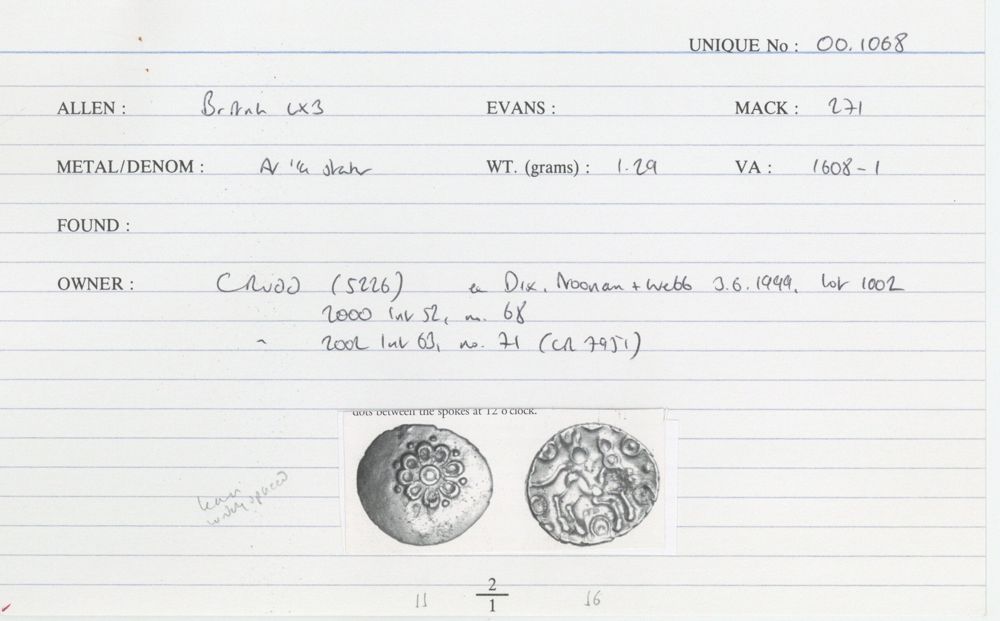 UNIQUE No : 00.1068
ALLEN : British LX3 EVANS : MACK : 271
METAL/DENOM : AV 1/4 stater WT. (grams) : 1.29 VA : 1608-1
FOUND :
OWNER : CRUDD (5226) ex Dix, Noonan + Webb 3.6.1999, lot 1002
2000 list 52, no. 68
" 2002 list 63, no. 71 (CR 7951)
dots between the spokes at 12 o'clock.
widely spaced
2
11 16
1